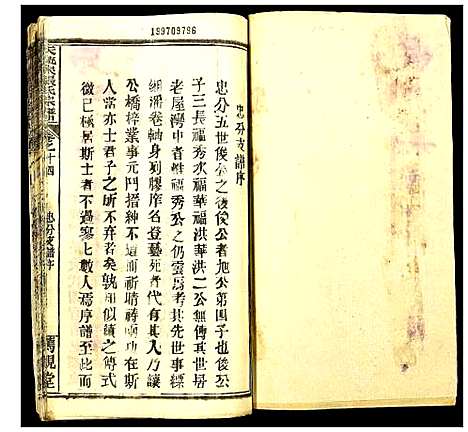 199709796
忠分支譜序
忠分五世俊公之後俊公者旭公第四子也俊公
子三長福秀次福華福洪華洪二公無傳其世居
老屋灣中者惟福秀公之仍雲焉考其先世事縹
緗滿卷軸身列膠庠名登藝苑者代有其人乃讓
公橋梓業事元門搢紳不遺而祈晴禱雨功在斯
人常亦士君子之所不弃者矣孰知似續之傳式
微已極居斯土者不過寥七數人焉序譜至此而
卷之十四
忠分支譜序
親堂